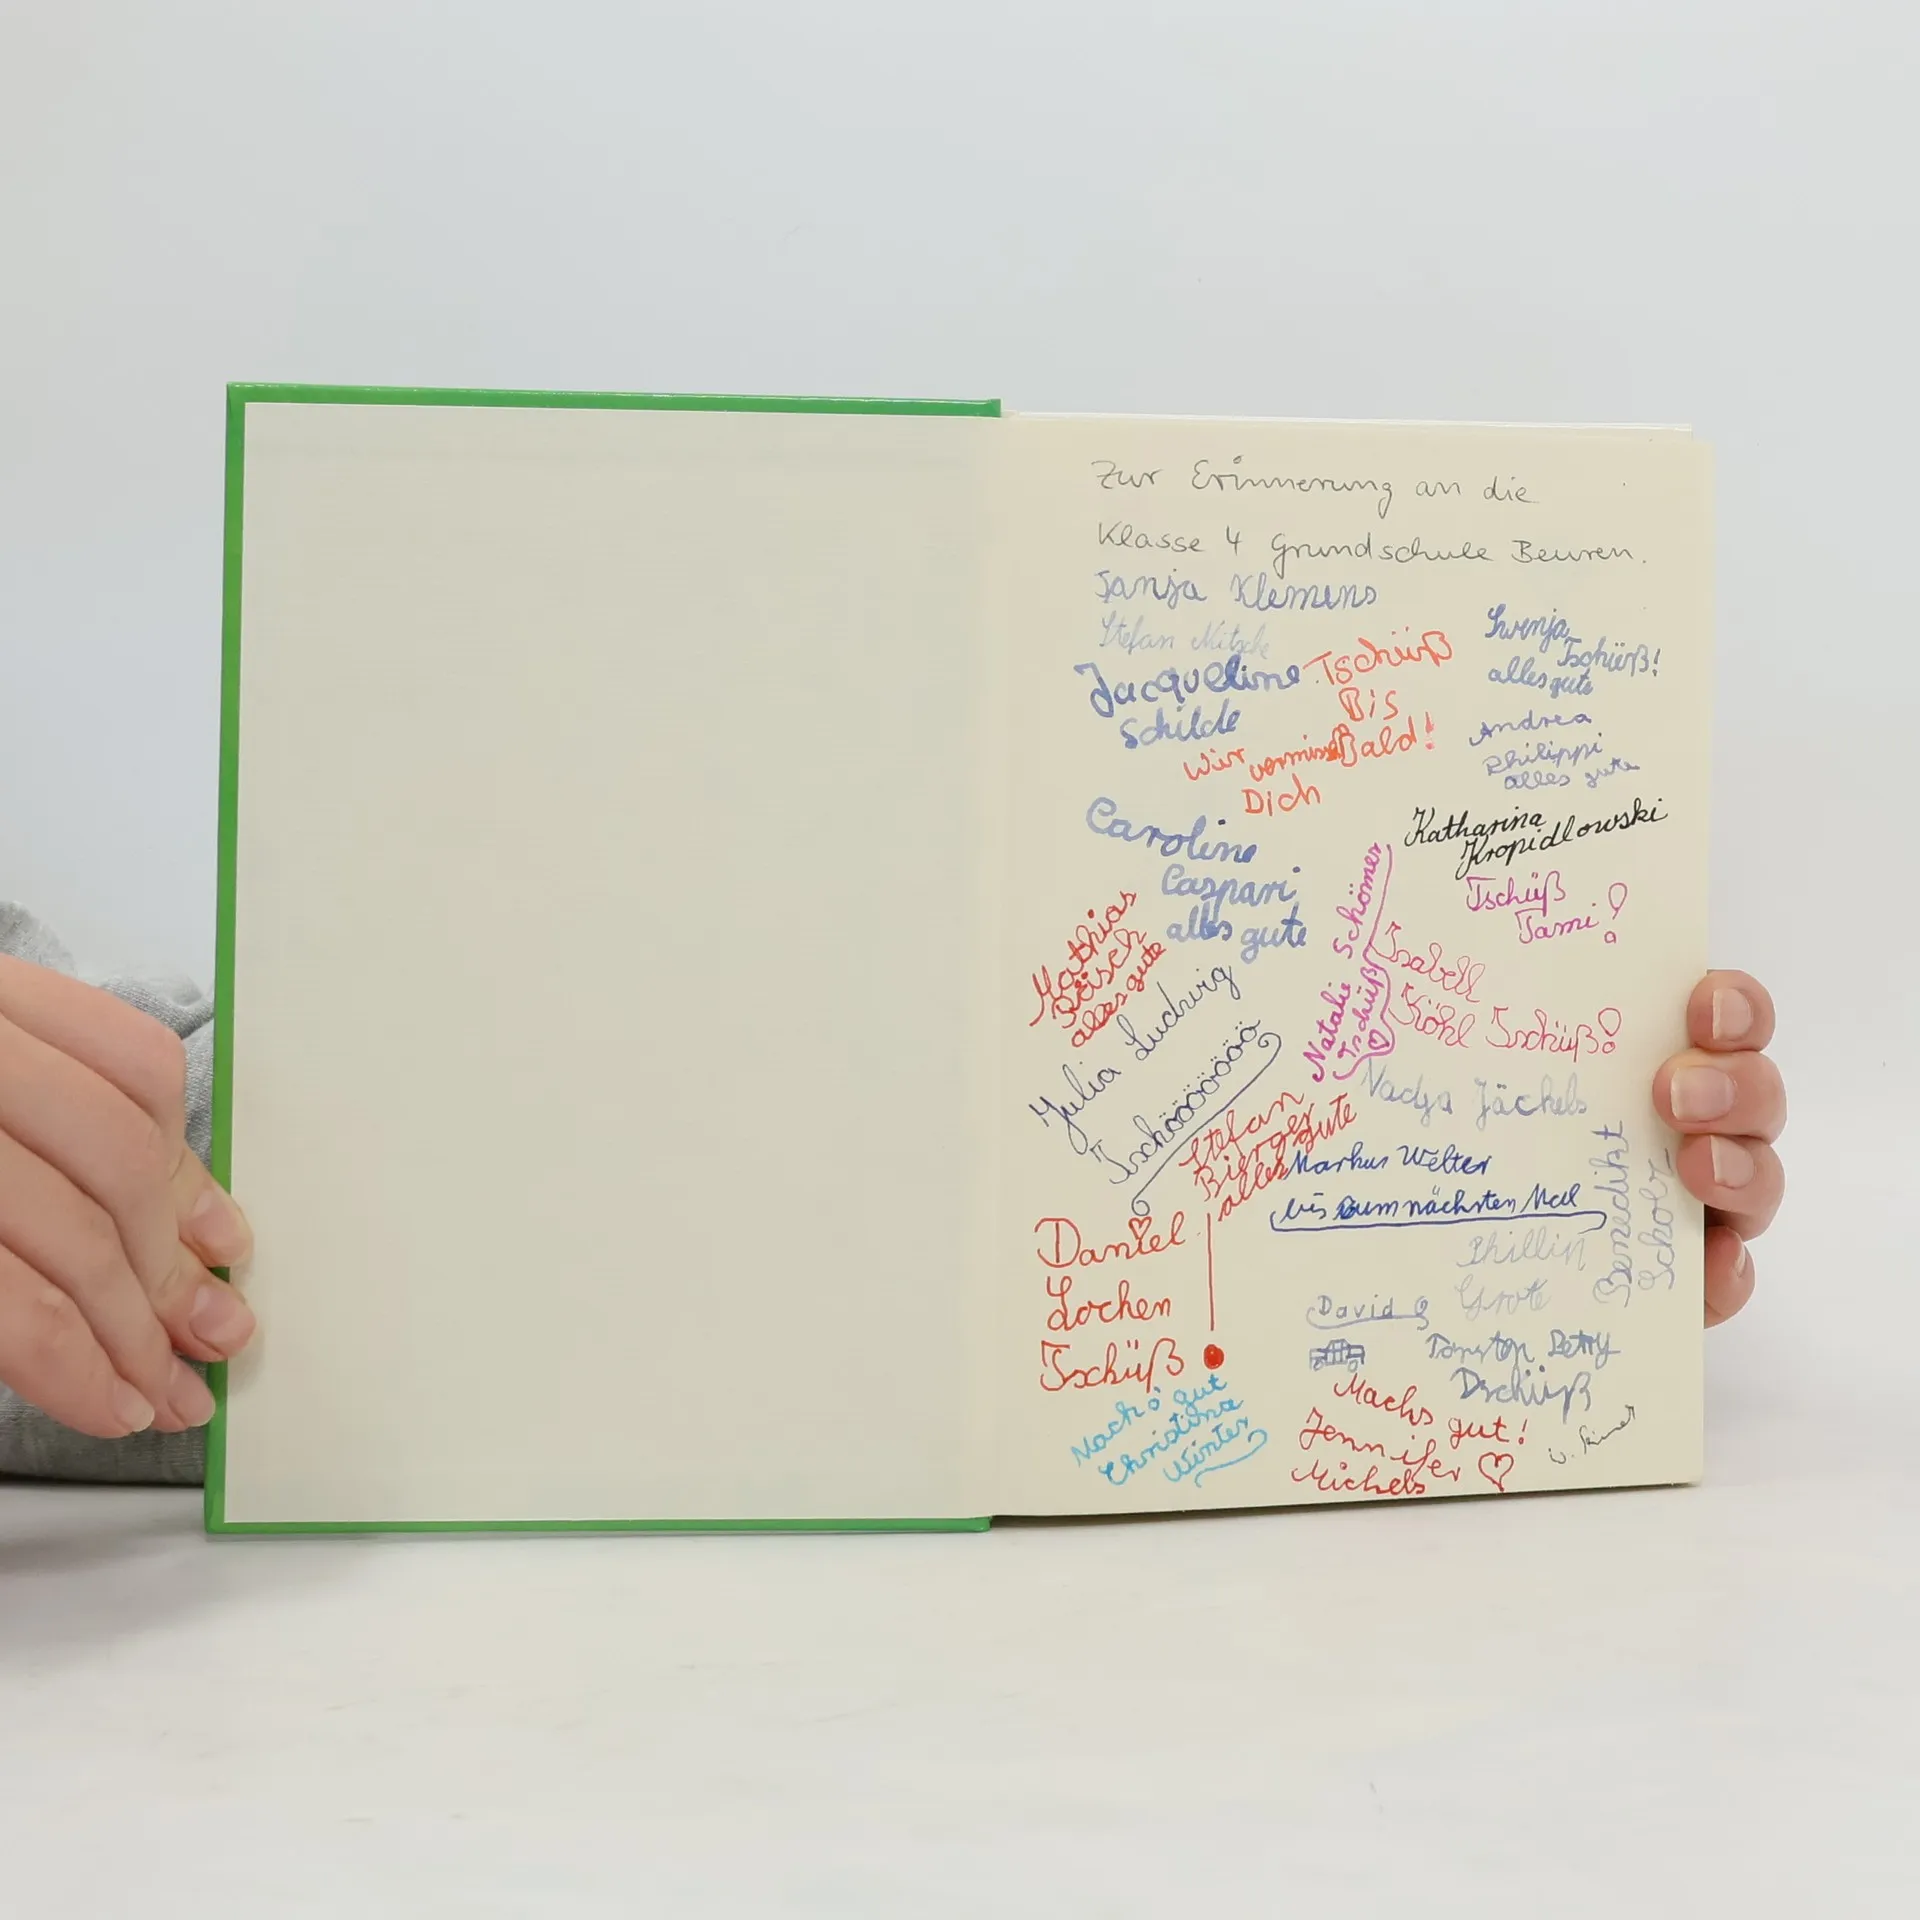 Zur Erinnerung an die
Klasse 4 Grundschule Beuren.
Tanja Klemens
Stefan Nitsche
Jacqueline
Schilde
Tschüß
Bis
Bald!
Wir vermissen
Dich
Swenja
Tschüß!
alles gute
Andrea
Philippi
alles gute
Caroline
Caspari
alles gute
Katharina
Kropidlowski
Tschüß
Tami!
Mathias
alles gute
Natalie Schömer
Tschüß
Isabell
Köhl Tschüß!
Julia Ludwig
Tschööööööö
Nadja Jäckels
Stefan
alles gute
Markus Welter
bis zum nächsten Mal
Benedikt
Scholz
Daniel
Lochen
Tschüß
Phillip
Grote
David
Torsten Petry
Dschüß
Mach's gut
Christina
Winter
Machs gut!
Jennifer
Michels